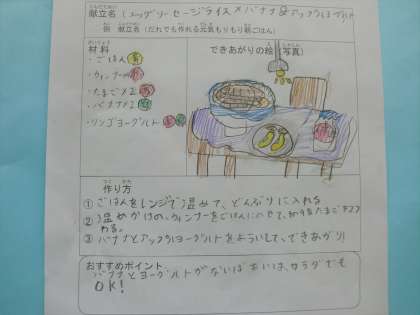 献立名 エッグソーセージライス×バナナ&アップルヨーグルト
例 献立名（だれでも作れる元気もりもり朝ごはん）
材料
できあがりの絵（写真）
・ごはん 黄
・ウィンナー 赤
・たまご×2 赤
・バナナ×2
・リンゴヨーグルト
作り方
① ごはんをレンジで温めて、どんぶりに入れる
② 温めかけの、ウィンナーをごはんにのせて、たまごを2つ
わる。
③ バナナとアップルヨーグルトをよういして、できあがり!
おすすめポイント
バナナとヨーグルトがないばあいは、サラダでも
OK!